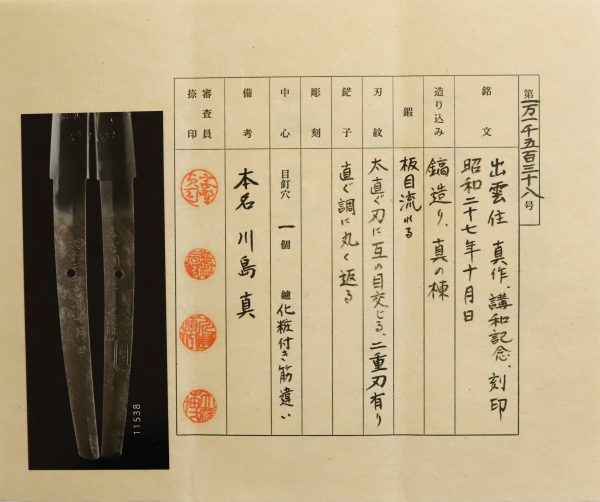 第一万一千五百三十八号
銘文
出雲住真作、講和記念、刻印
昭和二十七年十月日
造り込み
鎬造り、真の棟
鍜
板目流れる
刃紋
太直ぐ刃に互の目交じる、二重刃有り
鋩子
直ぐ調に丸く返る
彫刻
中心
目釘穴 一個 鑢 化粧付き筋違い
備考
本名 川島 真
審査員
捺印
11538